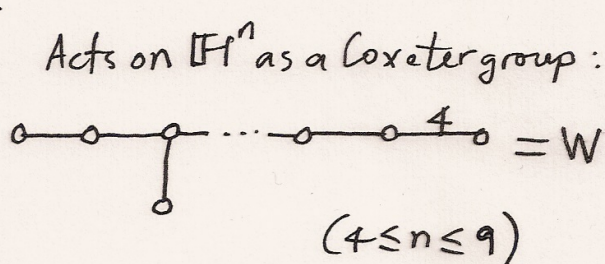 Acts on ℍⁿ as a Coxeter group :
4
= W
(4≤n≤9)